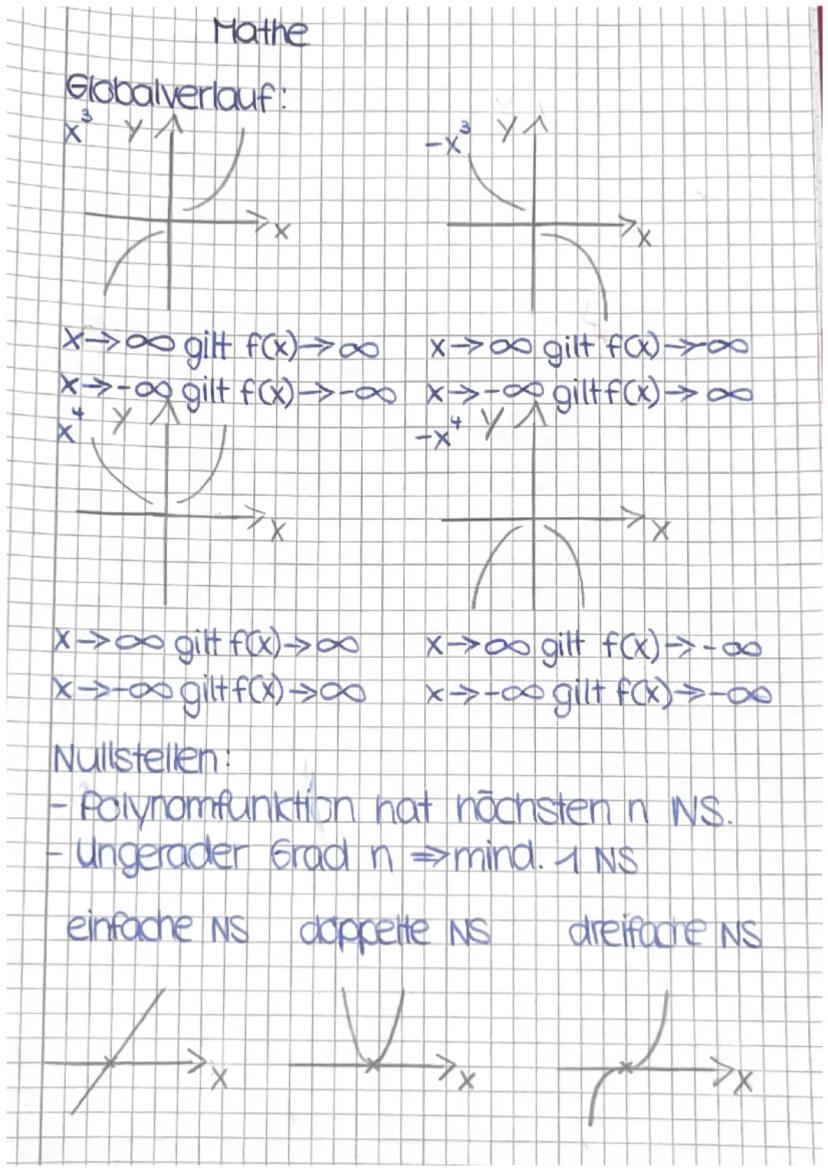 Mathe
Globalverlauf:
x³ y x
-x³ y x
x→∞ gilt f(x)→∞
x→-∞ gilt f(x)→-∞
x→∞ gilt f(x)→-∞
x→-∞ gilt f(x)→∞
x⁴ y x
-x⁴ y x
x→∞ gilt f(x)→∞
x→-∞ gilt f(x)→∞
x→∞ gilt f(x)→-∞
x→-∞ gilt f(x)→-∞
Nullstellen:
- Polynomfunktion hat höchsten n NS.
- Ungerader Grad n ⇒ mind. 1 NS
einfache NS doppelte NS dreifache NS
x x x